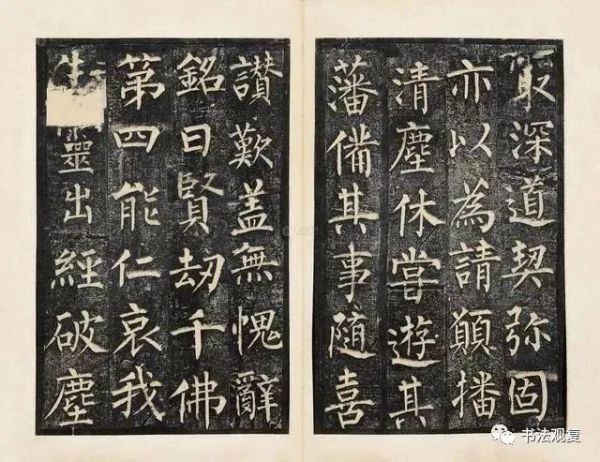 取深道契弥固
亦以為請願播
清塵休嘗遊其
藩備其事隨喜
讃歎盖無愧辭
銘曰賢劫千佛
第四能仁哀我
生靈出經破塵
书法观复